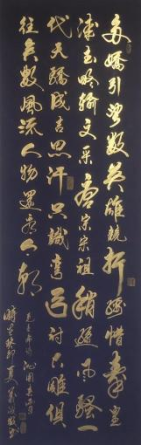 多嬌引無數英雄競折腰惜秦皇
漢武略輸文采唐宗宋祖稍遜風騷一
代天驕成吉思汗只識彎弓射大雕俱
往矣數風流人物還看今朝
沁園春